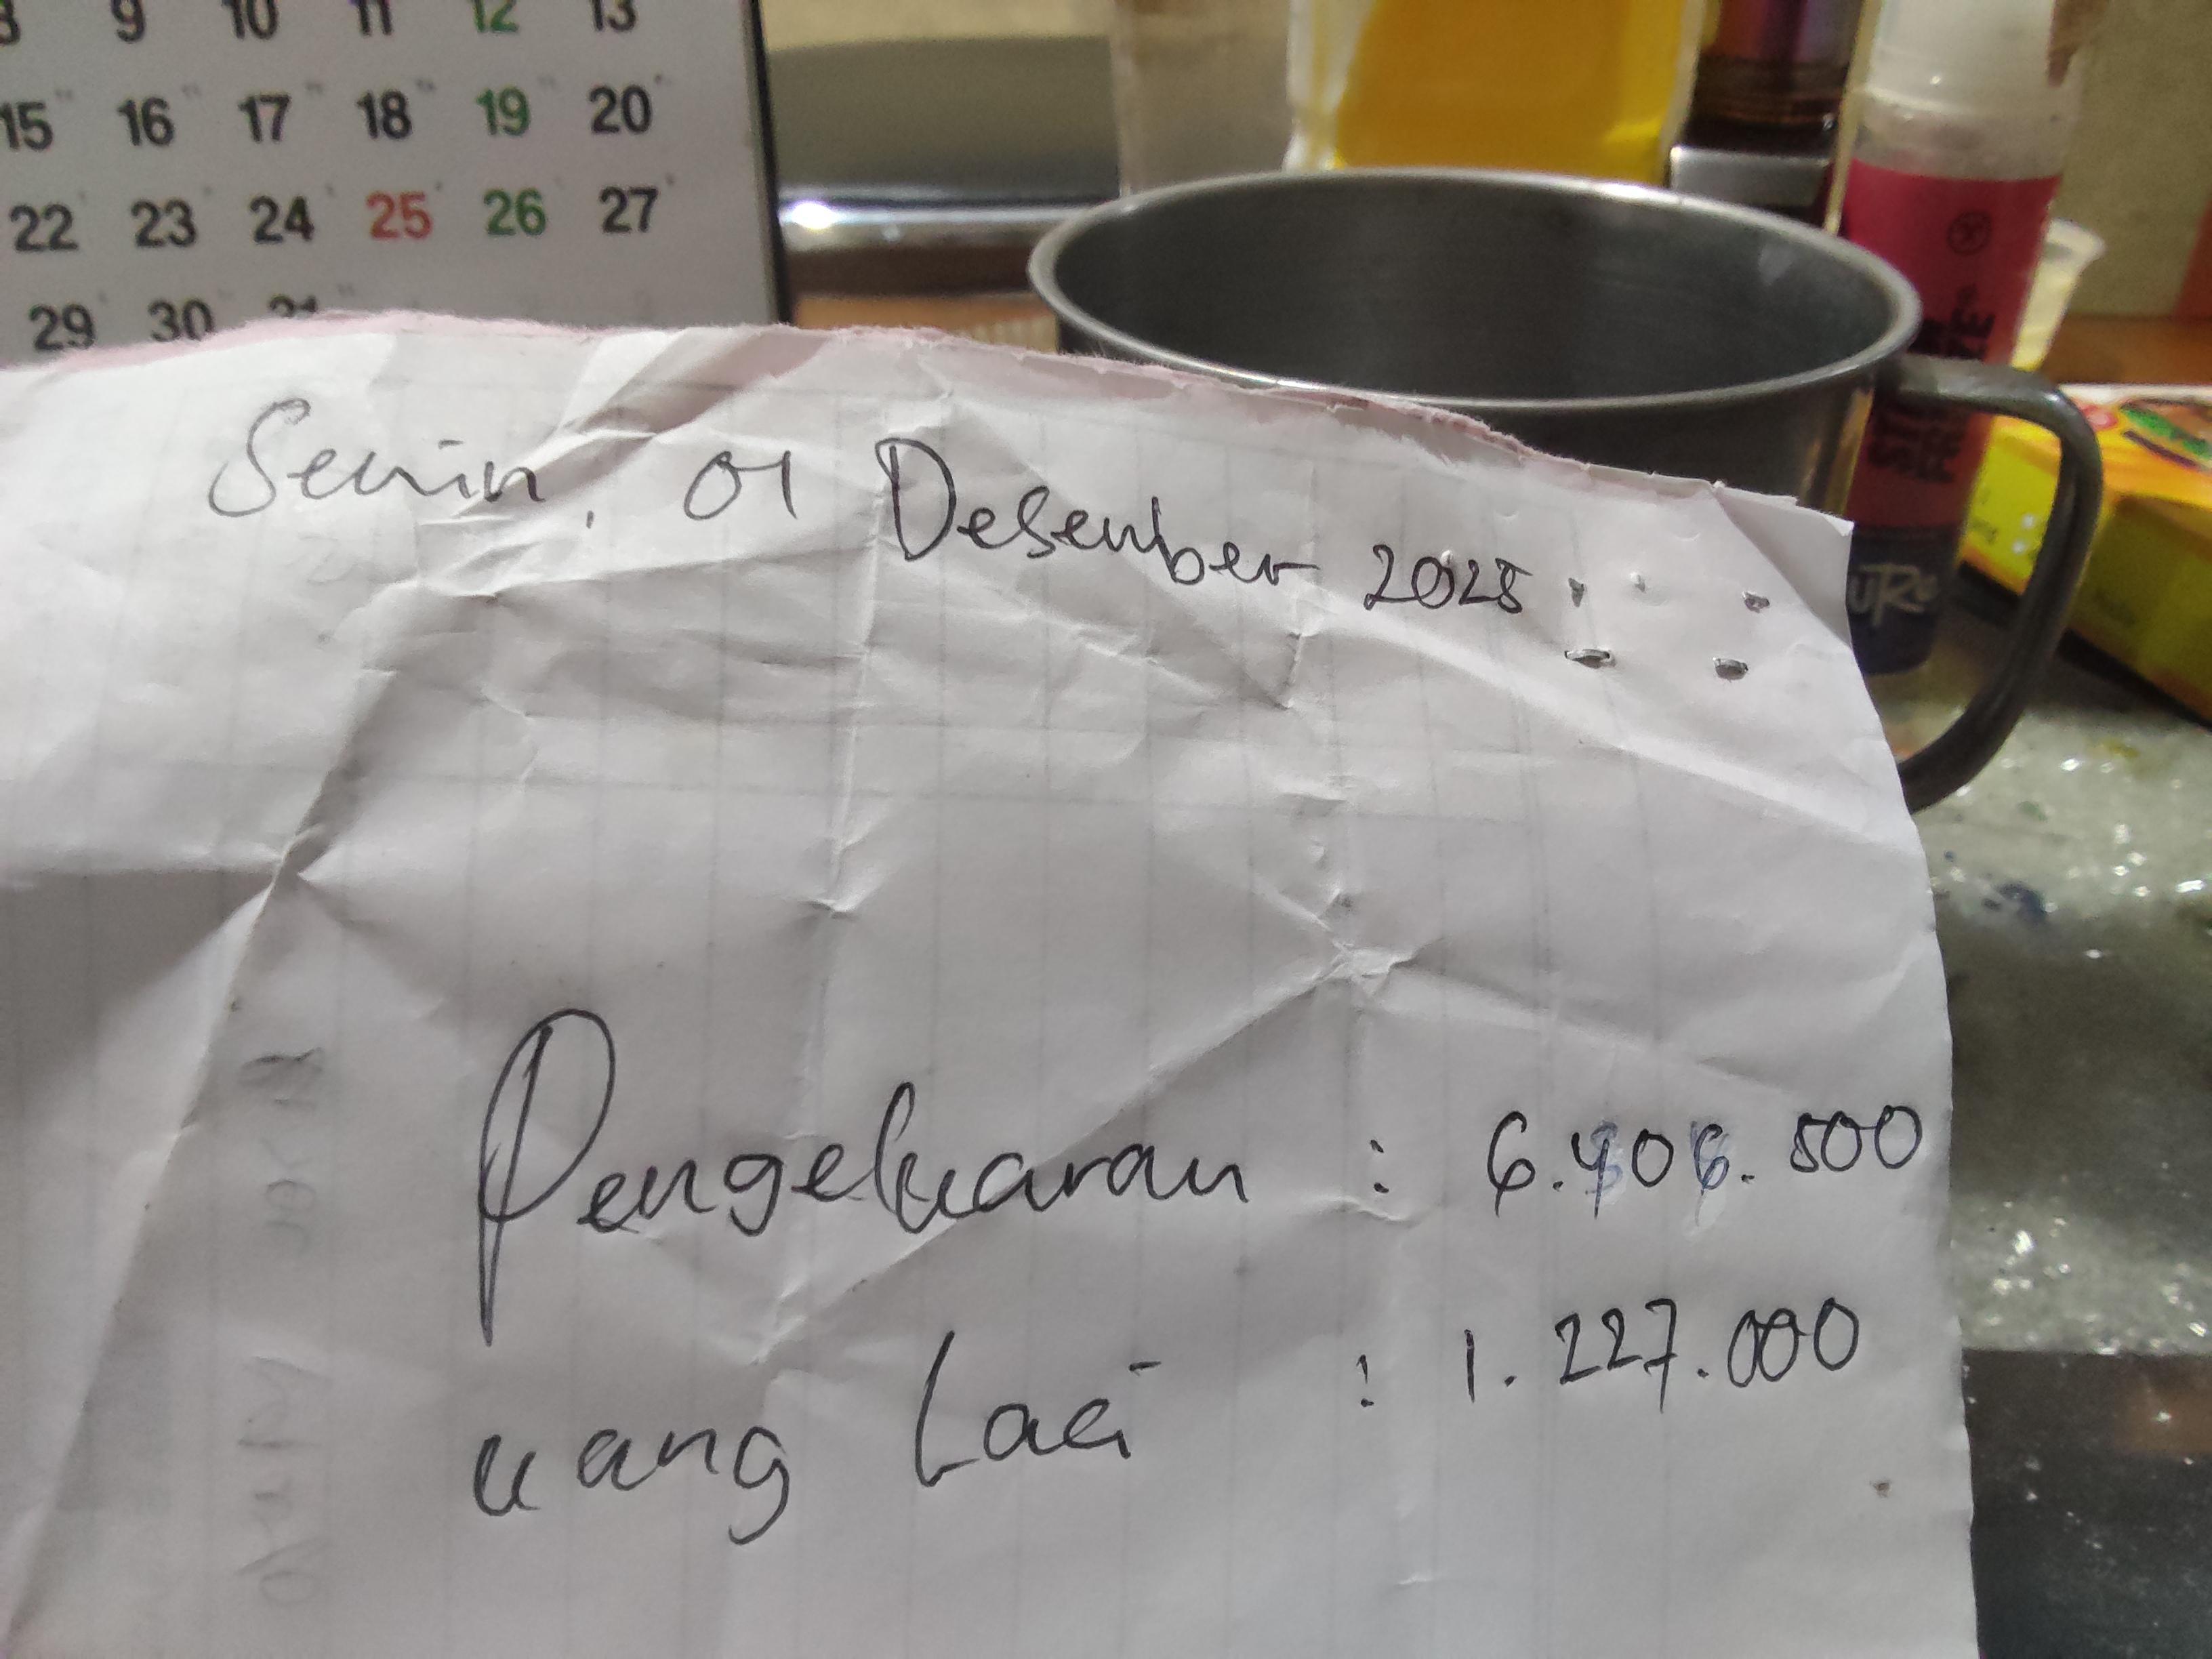 8 9 10 11 12 13
15 16 17 18 19 20
22 23 24 25 26 27
29 30 31
Senin, 01 Desember 2025
Pengeluaran : 6.406.500
uang Laci : 1.227.000
URE